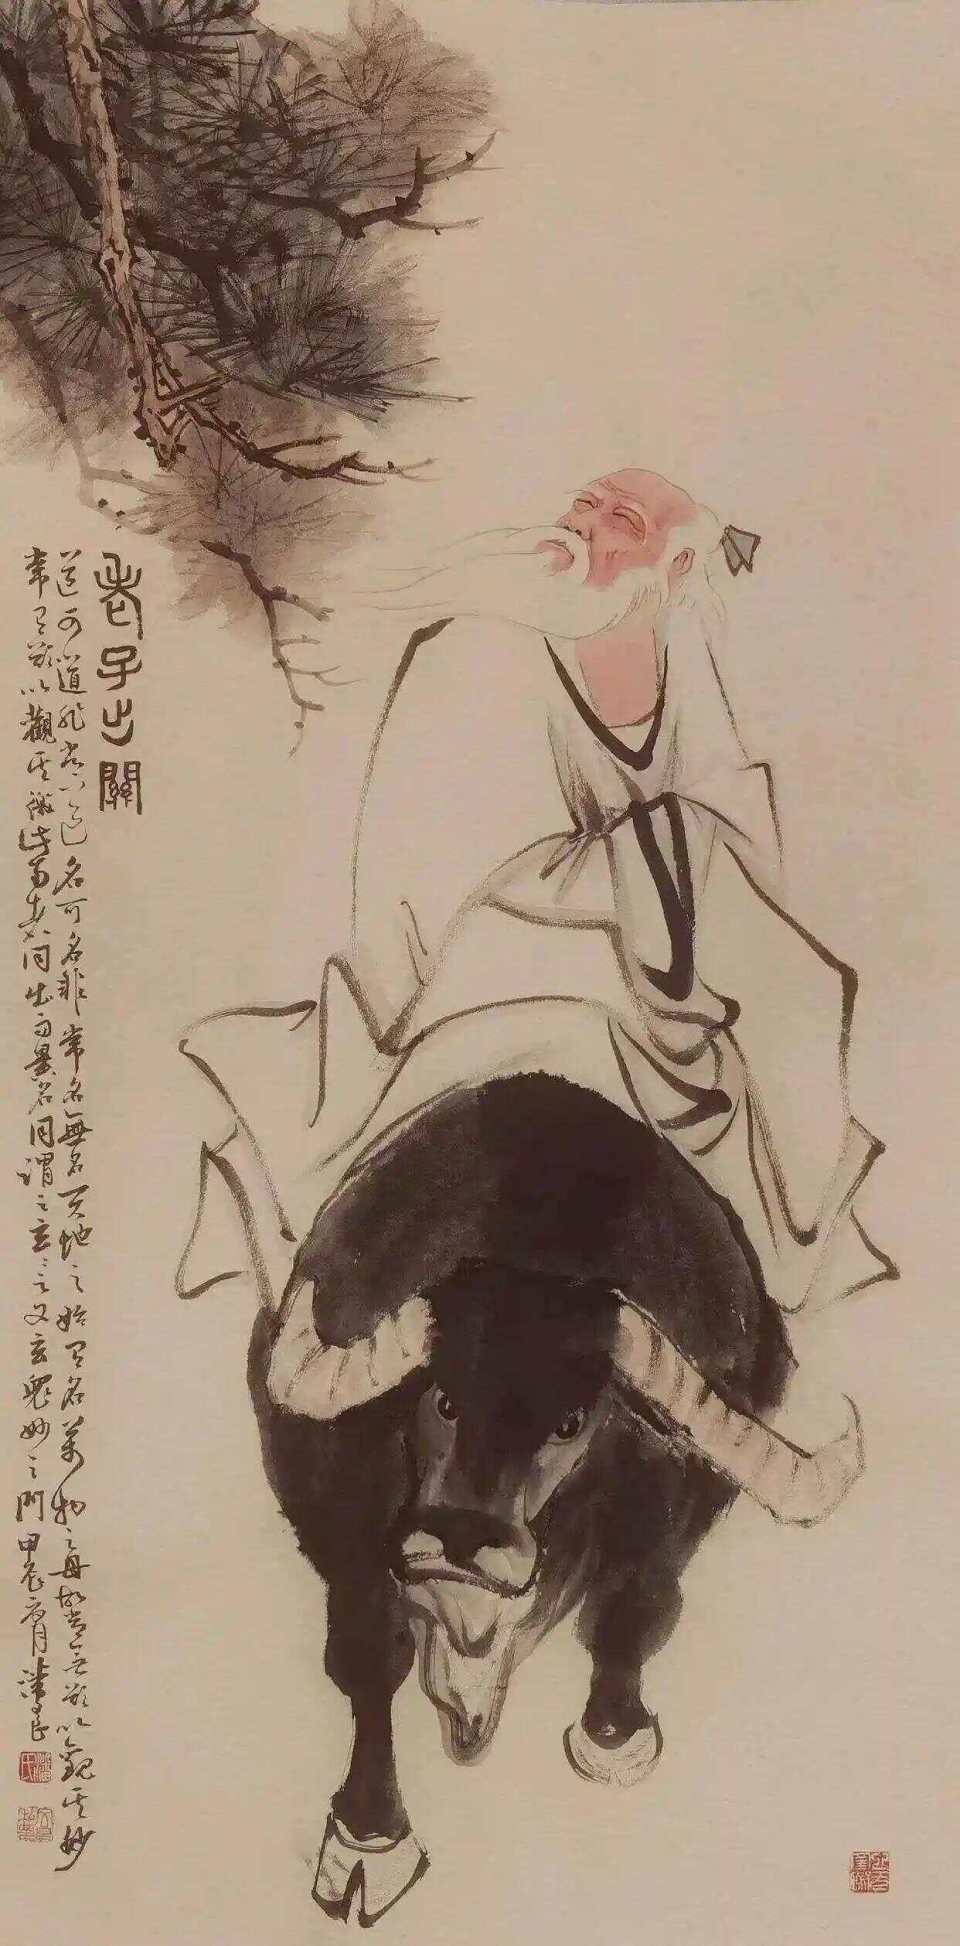 老子出關
道可道非常道名可名非常名無名天地之始有名萬物之母故常無欲以觀其妙
常有欲以觀其徼此兩者同出而異名同謂之玄玄之又玄眾妙之門甲辰